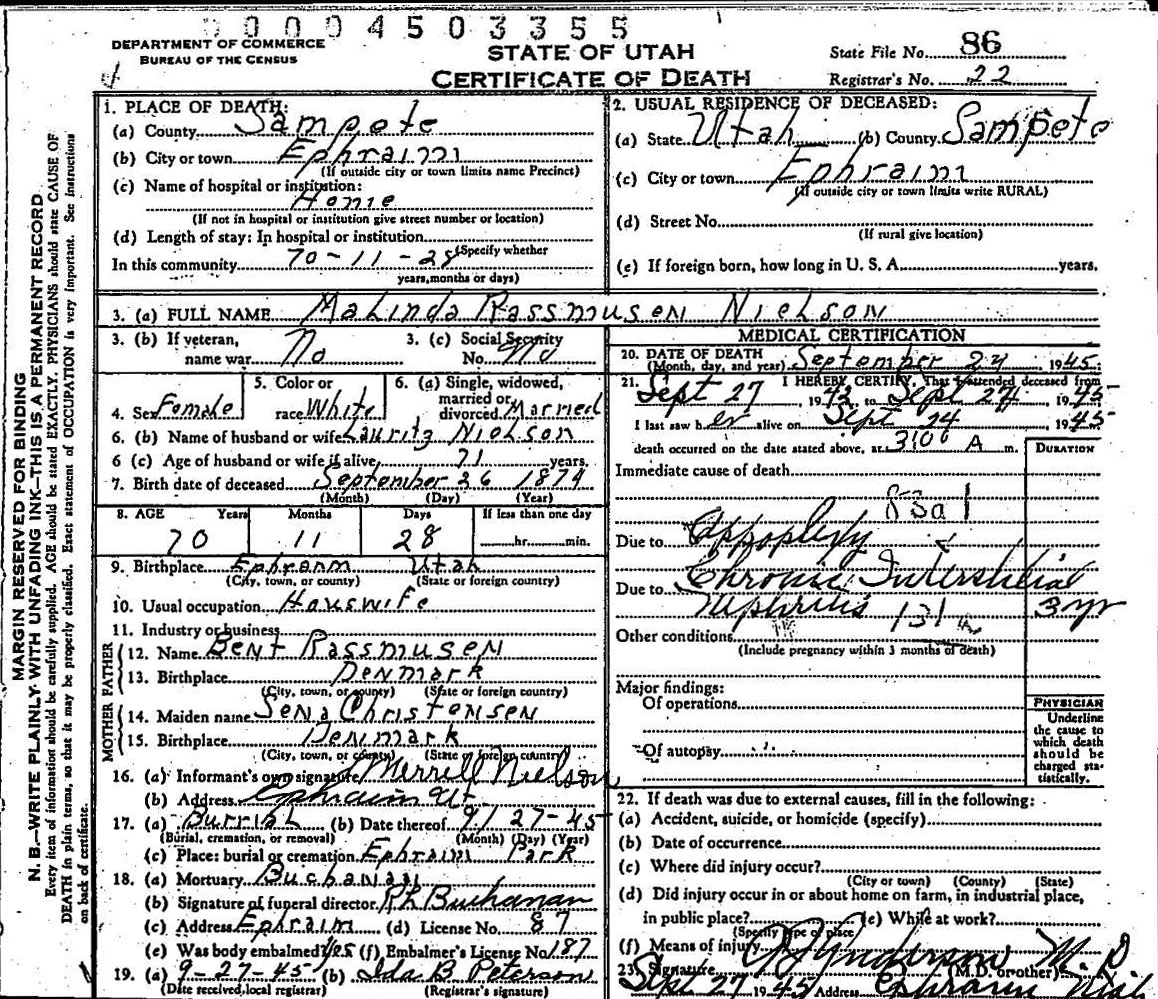 00004503355
DEPARTMENT OF COMMERCE
BUREAU OF THE CENSUS
STATE OF UTAH
CERTIFICATE OF DEATH
State File No. 86
Registrar's No. 22
MARGIN RESERVED FOR BINDING
N. B.—WRITE PLAINLY WITH UNFADING INK—THIS IS A PERMANENT RECORD
Every item of information should be carefully supplied. AGE should be stated EXACTLY. PHYSICIANS should state CAUSE OF
DEATH in plain terms, so that it may be properly classified. Exact statement of OCCUPATION is very important. See instructions
on back of certificate.
1. PLACE OF DEATH:
(a) County Sampete
(b) City or town Ephraim
(If outside city or town limits name Precinct)
(c) Name of hospital or institution:
Home
(If not in hospital or institution give street number or location)
(d) Length of stay: In hospital or institution
(Specify whether
In this community 70-11-28
years, months or days)
2. USUAL RESIDENCE OF DECEASED:
(a) State Utah (b) County Sampete
(c) City or town Ephraim
(If outside city or town limits write RURAL)
(d) Street No.
(If rural give location)
(e) If foreign born, how long in U. S. A. years.
3. (a) FULL NAME Malinda Rassmusen Nielson
3. (b) If veteran, name war No
3. (c) Social Security No. No
4. Sex Female
5. Color or race White
6. (a) Single, widowed, married or divorced Married
6. (b) Name of husband or wife Lauritz Nielson
6 (c) Age of husband or wife if alive 71 years.
7. Birth date of deceased September 26 1874
(Month) (Day) (Year)
8. AGE Years Months Days If less than one day
70 11 28 hr. min.
9. Birthplace Ephraim Utah
(City, town, or county) (State or foreign country)
10. Usual occupation Houswife
11. Industry or business
FATHER
12. Name Bent Rassmusen
13. Birthplace Denmark
(City, town, or county) (State or foreign country)
MOTHER
14. Maiden name Sena Christensen
15. Birthplace Denmark
(City, town, or county) (State or foreign country)
16. (a) Informant's own signature Merrill Nielson
(b) Address Ephraim Ut
17. (a) Burrial (b) Date thereof 9/27-45
(Burial, cremation, or removal) (Month) (Day) (Year)
(c) Place: burial or cremation Ephraim Park
18. (a) Mortuary Buchanan
(b) Signature of funeral director Buchanan
(c) Address Ephraim (d) License No. 87
(e) Was body embalmed? Yes (f) Embalmer's License No. 187
19. (a) 9-27-45 (b) Ida B Peterson
(Date received local registrar) (Registrar's signature)
MEDICAL CERTIFICATION
20. DATE OF DEATH
(Month, day, and year) September 24 1945
21. I HEREBY CERTIFY, That I attended deceased from
Sept 27, 1942, to Sept 24, 1945
I last saw her alive on Sept 24 1945
death occurred on the date stated above, at A m.
DURATION
Immediate cause of death
83a1
Due to Appoplexy &
Due to Chronic Interstitial
Nephritis 131a 3 yr
Other conditions
(Include pregnancy within 3 months of death)
Major findings:
Of operations
Of autopsy
PHYSICIAN
Underline
the cause to
which death
should be
charged sta-
tistically.
22. If death was due to external causes, fill in the following:
(a) Accident, suicide, or homicide (specify)
(b) Date of occurrence
(c) Where did injury occur?
(City or town) (County) (State)
(d) Did injury occur in or about home on farm, in industrial place,
in public place? (e) While at work?
(Specify type of place)
(f) Means of injury
23. Signature M D
(M.D. or other)
Sept 27 1945 Address Ephraim Utah